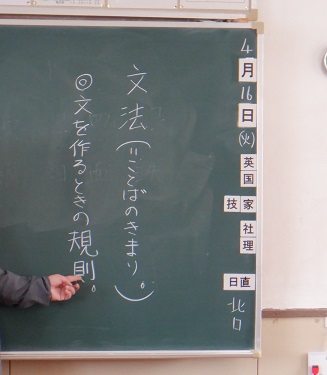 4月16日(火)
英
国
技家
社
理
日直
北口
文法(=ことばのきまり。)
◎文を作るときの規則。